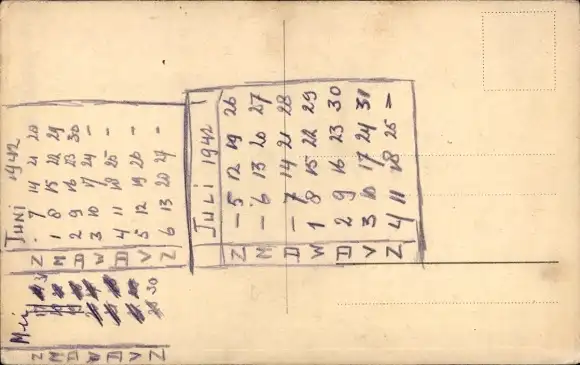 Mei
Z 31
M
D
W
D
V
Z 30
Juni 1942
Z - 7 14 21 28
M 1 8 15 22 29
D 2 9 16 23 30
W 3 10 17 24 -
D 4 11 18 25 -
V 5 12 19 26 -
Z 6 13 20 27 -
Juli 1942
Z - 5 12 19 26
M - 6 13 20 27
D - 7 14 21 28
W 1 8 15 22 29
D 2 9 16 23 30
V 3 10 17 24 31
Z 4 11 18 25 -